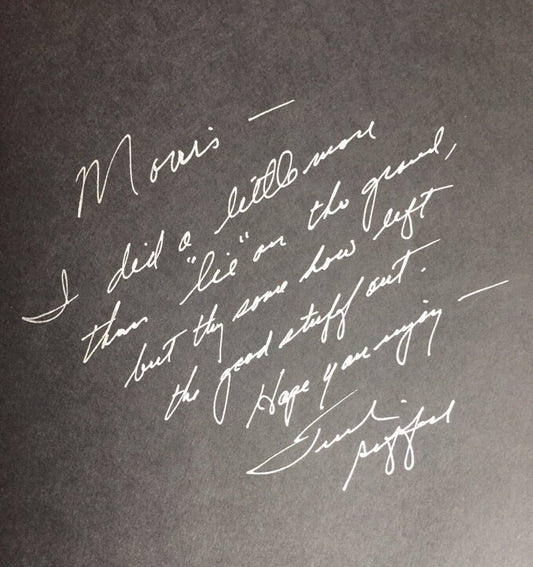 Morris —
I did a little more
than "lie" on the ground,
but they some how left
the good stuff out.
Hope you enjoy —
Frank
Gifford